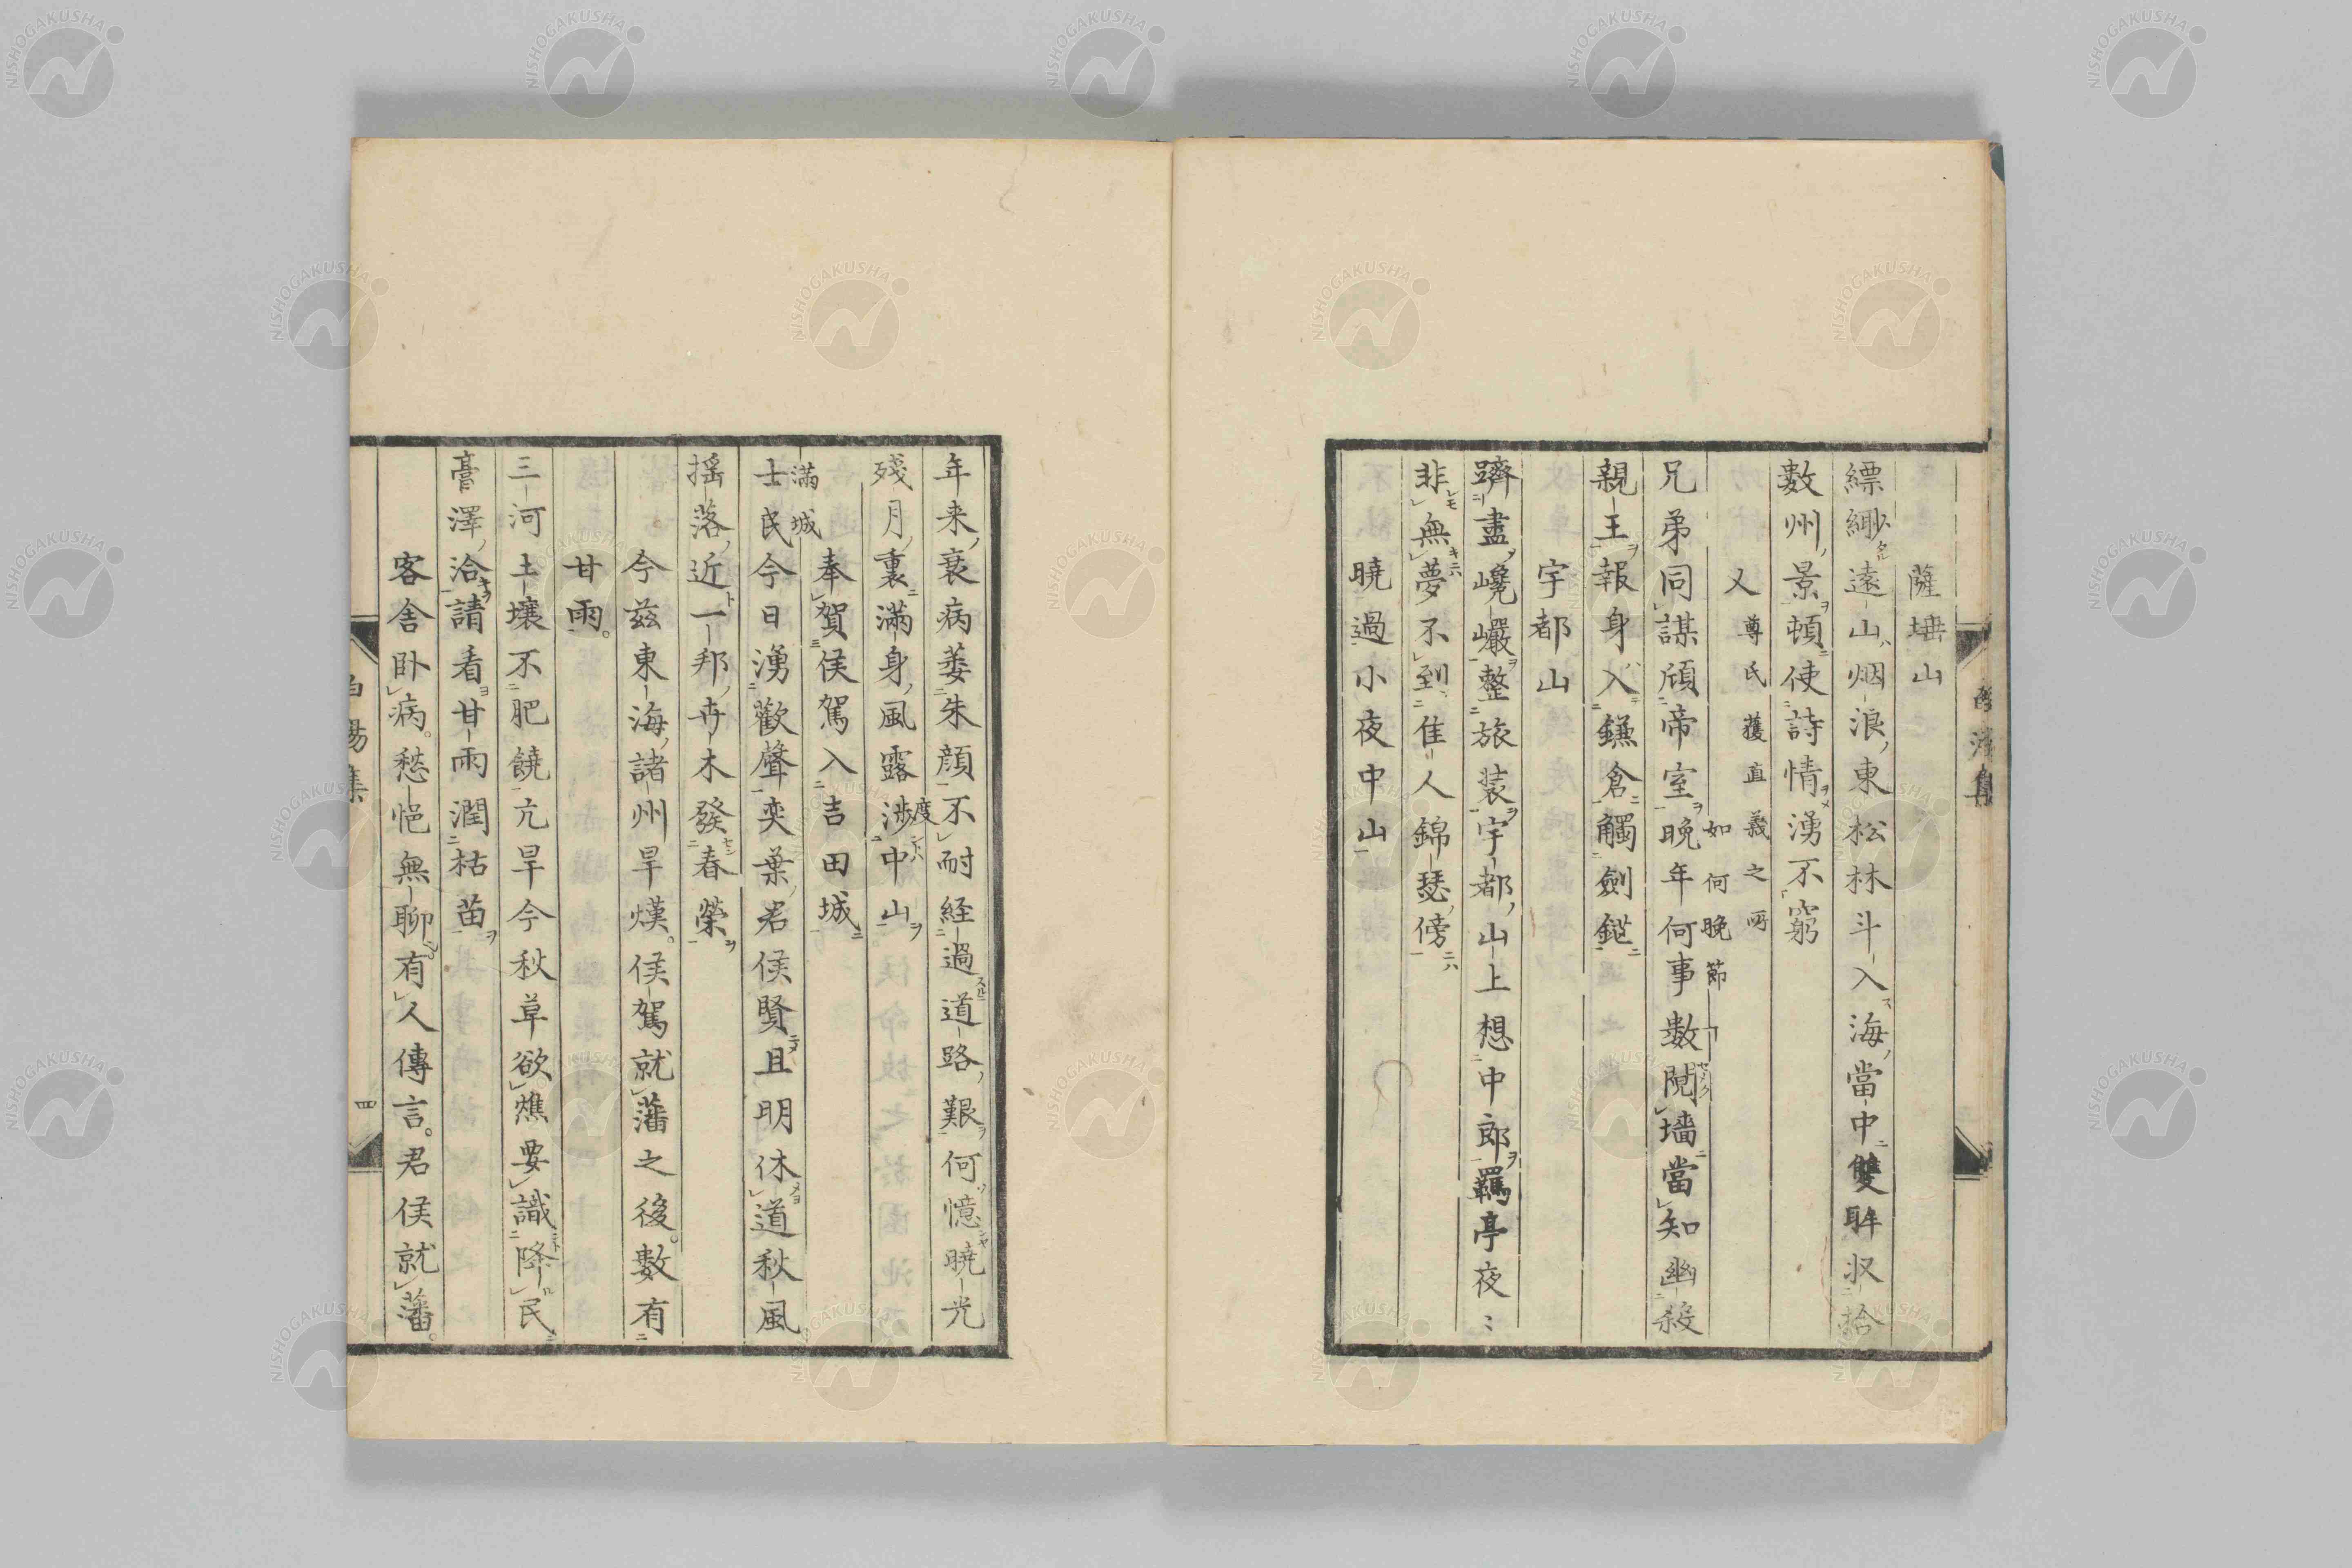 薩埵山
縹緲遠山烟浪東松林斗入海當中雙眸収拾
數州景頓使詩情湧不窮
又 尊氏獲直義之所
兄弟同謀頎帝室晩年何事數鬩墻當知幽殺
如何晩節
親王報身入鎌倉觸劍鎚
宇都山
躋盡巉巖整旅装宇都山上想中郎羈亭夜〻
非無夢不到佳人錦瑟傍
暁過小夜中山
年来衰病萎朱顔不耐経過道路艱何憶暁光
残月裏滿身風露渉中山
度
奉賀侯駕入吉田城
滿城
士民今日湧歡聲奕葉君侯賢且明休道秋風
揺落近一邦卉木發春榮
今茲東海諸州旱熯。侯駕就藩之後。數有
甘雨。
三河土壤不肥饒亢旱今秋草欲燋要識降民
膏澤洽請看甘雨潤枯苗
客舎卧病。愁悒無聊。有人傳言。君侯就藩。
四